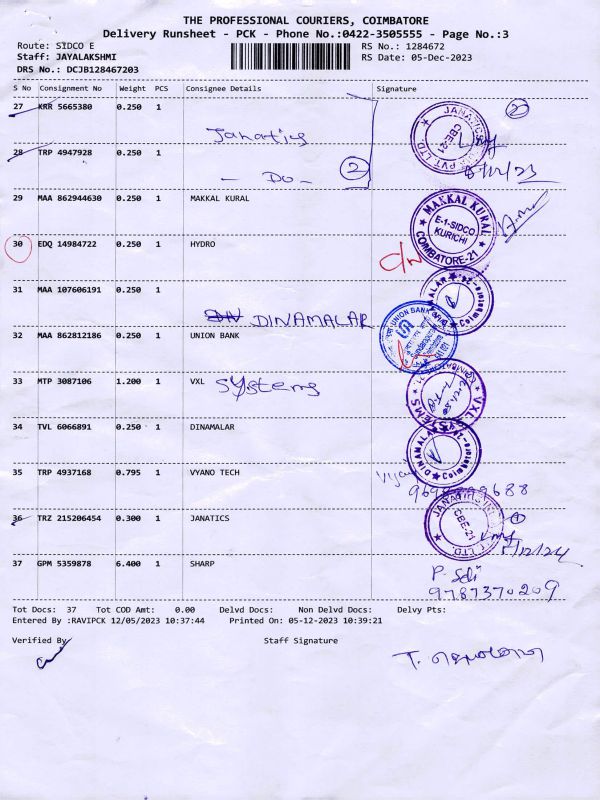 THE PROFESSIONAL COURIERS, COIMBATORE
Delivery Runsheet - PCK - Phone No.:0422-3505555 - Page No.:3
Route: SIDCO E RS No.: 1284672
Staff: JAYALAKSHMI RS Date: 05-Dec-2023
DRS No.: DCJB128467203
S No Consignment No Weight PCS Consignee Details Signature
27 KRR 5665380 0.250 1
Janatics
28 TRP 4947928 0.250 1
- Do - 2
29 MAA 862944630 0.250 1 MAKKAL KURAL
MAKKAL KURAL
E-1-SIDCO
KURICHI
COIMBATORE-21
30 EDQ 14984722 0.250 1 HYDRO
31 MAA 107606191 0.250 1
DINAMALAR
32 MAA 862812186 0.250 1 UNION BANK
UNION BANK
33 MTP 3087106 1.200 1 VXL Systems
34 TVL 6066891 0.250 1 DINAMALAR
DINAMALAR
35 TRP 4937168 0.795 1 VYANO TECH
36 TRZ 215206454 0.300 1 JANATICS
CBE-21
37 GPM 5359878 6.400 1 SHARP
9787370209
Tot Docs: 37 Tot COD Amt: 0.00 Delvd Docs: Non Delvd Docs: Delvy Pts:
Entered By :RAVIPCK 12/05/2023 10:37:44 Printed On: 05-12-2023 10:39:21
Verified By Staff Signature